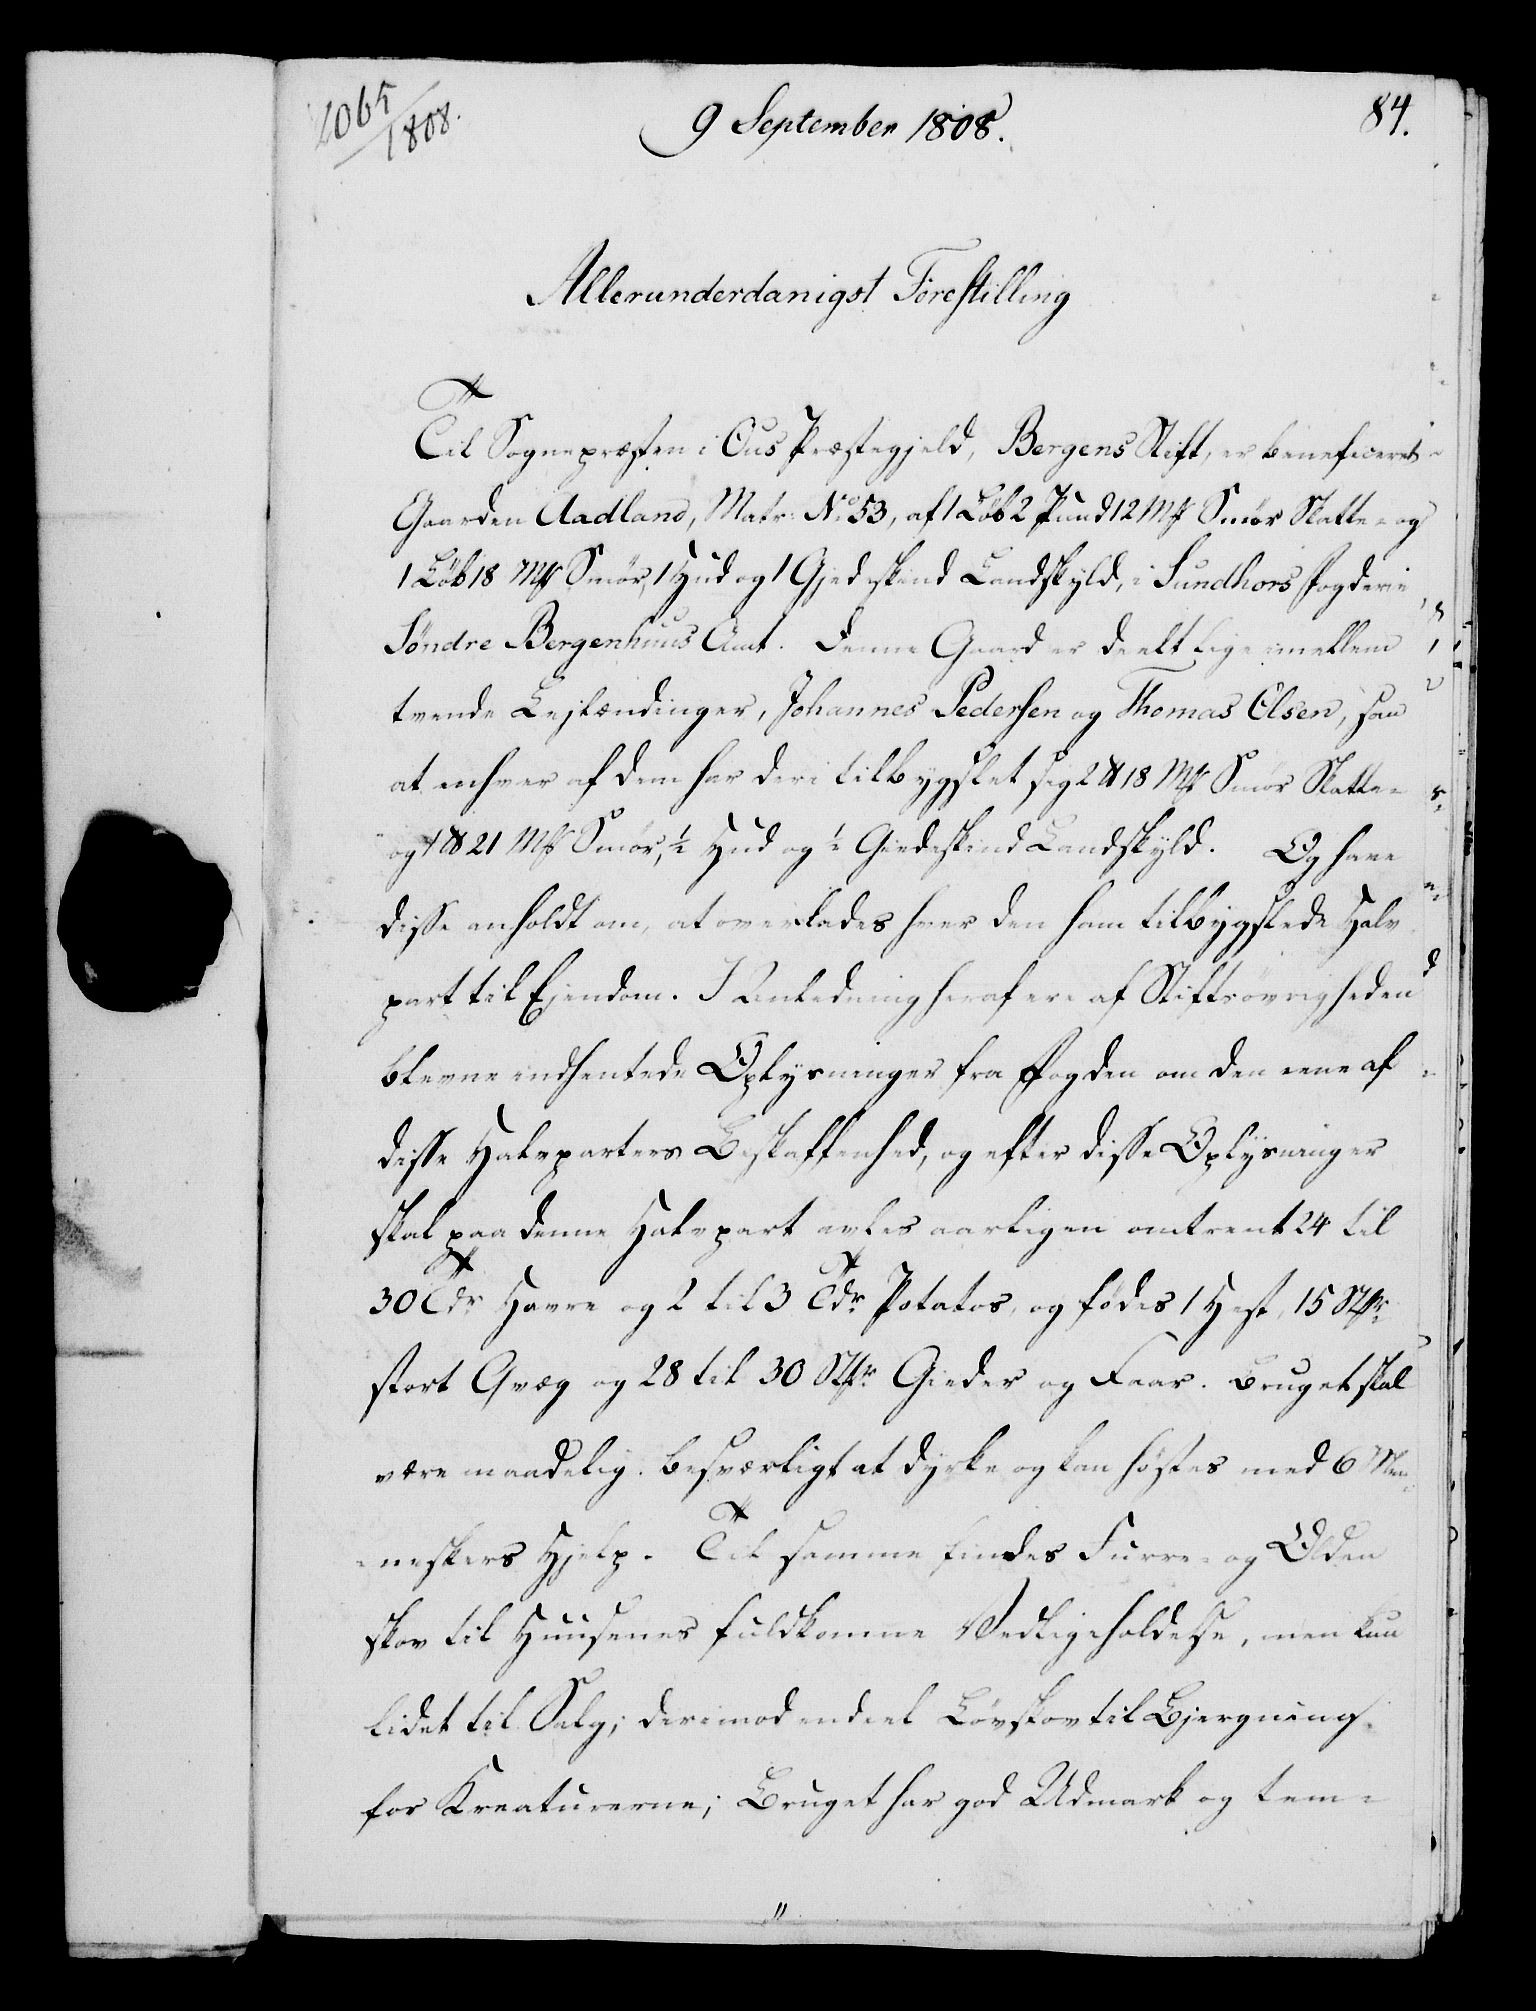 2065/1808.
9 September 1808.
84.
Allerunderdanigst Forestilling
Til Sognepræsten i Ous Præstegjeld, Bergens Stift, er beneficeret
Gaarden Aadland, Matr: No 53, af 1 Löb 2 Pund 12 Mk Smör Skatte- og
1 Löb 18 Mk Smör, 1 Hud og 1 Gjedeskind Landskyld, i Sundhors Fogderie
Söndre Bergenhuus Amt. Denne Gaard er deelt lige imellem
tvende Lejlændinger, Johannes Pedersen og Thomas Olsen, saa
at enhver af dem har deri tilbygslet sig 2 ℔ 18 Mk Smör Skatte-
og 1 ℔ 21 Mk Smör, ½ Hud og ½ Giedeskind Landskyld. Og have
disse anholdt om, at overlades hver den ham tilbygslede Halv
part til Ejendom. I Anledning heraf ere af Stiftsövrigheden
blevne indhentede Oplysninger fra Fogden om den eene af
disse Halvparters Beskaffenhed, og efter disse Oplysninger
skal paa denne Halvpart avles aarligen omtrent 24 til
30 Tdr Havre og 2 til 3 Tdr Potatos, og födes 1 Hest, 15 Stkr
stort Qvæg og 28 til 30 Stkr Gieder og Faar. Bruget skal
være maadelig besværligt at dyrke og kan höstes med 6 Men-
neskers Hjelp. Til samme findes Furre- og Olden
skov til Huusenes fuldkomne Vedligeholdelse, men kun
lidet til Salg; derimod endeel Lövskov til Bjergning
for Kreaturerne; Bruget har god Udmark og tem-